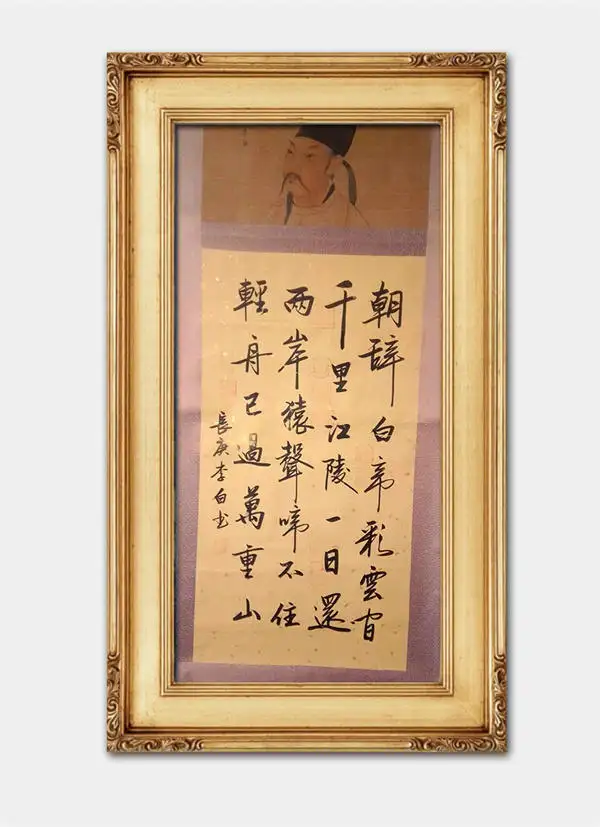 朝辭白帝彩雲間
千里江陵一日還
两岸猿聲啼不住
輕舟已過萬重山
長庚李白书